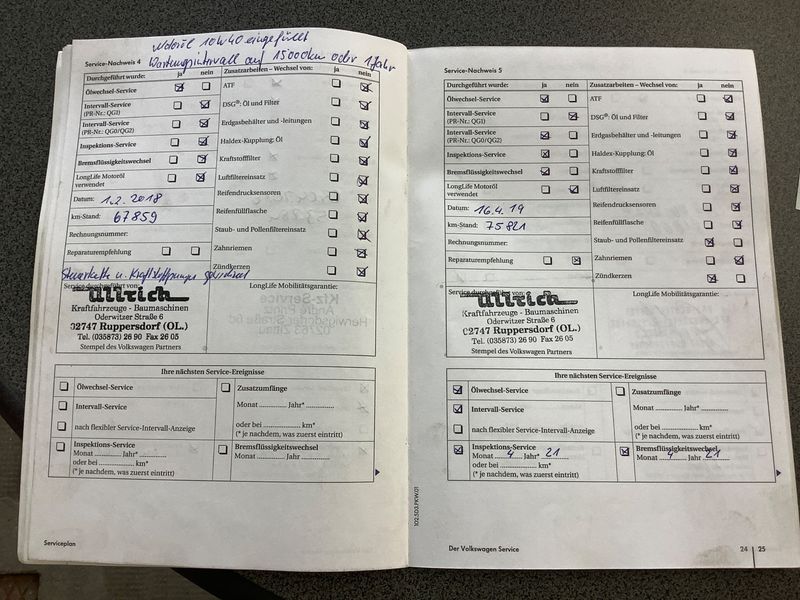 Motoröl 10W40 eingefüllt
Wartungsintervall auf 15000km oder 1 Jahr
Service-Nachweis 4
Durchgeführt wurde: ja nein
Ölwechsel-Service
Intervall-Service
(PR-Nr.: QG1)
Intervall-Service
(PR-Nr.: QG0/QG2)
Inspektions-Service
Bremsflüssigkeitswechsel
LongLife Motoröl
verwendet
Datum: 1.2.2018
km-Stand: 67859
Rechnungsnummer:
Reparaturempfehlung
Steuerkette u. Kraftstoffpumpe
Zusatzarbeiten – Wechsel von: ja nein
ATF
DSG®: Öl und Filter
Erdgasbehälter und -leitungen
Haldex-Kupplung: Öl
Kraftstofffilter
Luftfiltereinsatz
Reifendrucksensoren
Reifenfüllflasche
Staub- und Pollenfiltereinsatz
Zahnriemen
Zündkerzen
Service durchgeführt von:
Ullrich
Kraftfahrzeuge - Baumaschinen
Oderwitzer Straße 6
02747 Ruppersdorf (OL.)
Tel. (035873) 26 90 Fax 26 05
Stempel des Volkswagen Partners
LongLife Mobilitätsgarantie:
Ihre nächsten Service-Ereignisse
Ölwechsel-Service
Intervall-Service
nach flexibler Service-Intervall-Anzeige
Inspektions-Service
Monat ............ Jahr* ............
oder bei ............ km*
(* je nachdem, was zuerst eintritt)
Zusatzumfänge
Monat ............ Jahr* ............
oder bei ............ km*
(* je nachdem, was zuerst eintritt)
Bremsflüssigkeitswechsel
Monat ............ Jahr ............
Serviceplan
Service-Nachweis 5
Durchgeführt wurde: ja nein
Ölwechsel-Service
Intervall-Service
(PR-Nr.: QG1)
Intervall-Service
(PR-Nr.: QG0/QG2)
Inspektions-Service
Bremsflüssigkeitswechsel
LongLife Motoröl
verwendet
Datum: 16.4.19
km-Stand: 75821
Rechnungsnummer:
Reparaturempfehlung
Zusatzarbeiten – Wechsel von: ja nein
ATF
DSG®: Öl und Filter
Erdgasbehälter und -leitungen
Haldex-Kupplung: Öl
Kraftstofffilter
Luftfiltereinsatz
Reifendrucksensoren
Reifenfüllflasche
Staub- und Pollenfiltereinsatz
Zahnriemen
Zündkerzen
Service durchgeführt von:
Ullrich
Kraftfahrzeuge - Baumaschinen
Oderwitzer Straße 6
02747 Ruppersdorf (OL.)
Tel. (035873) 26 90 Fax 26 05
Stempel des Volkswagen Partners
LongLife Mobilitätsgarantie:
Ihre nächsten Service-Ereignisse
Ölwechsel-Service
Intervall-Service
nach flexibler Service-Intervall-Anzeige
Inspektions-Service
Monat 4 Jahr 21
oder bei ............ km*
(* je nachdem, was zuerst eintritt)
Zusatzumfänge
Monat ............ Jahr* ............
oder bei ............ km*
(* je nachdem, was zuerst eintritt)
Bremsflüssigkeitswechsel
Monat 4 Jahr 21
102.5D3.PKW.01
Der Volkswagen Service
24 25